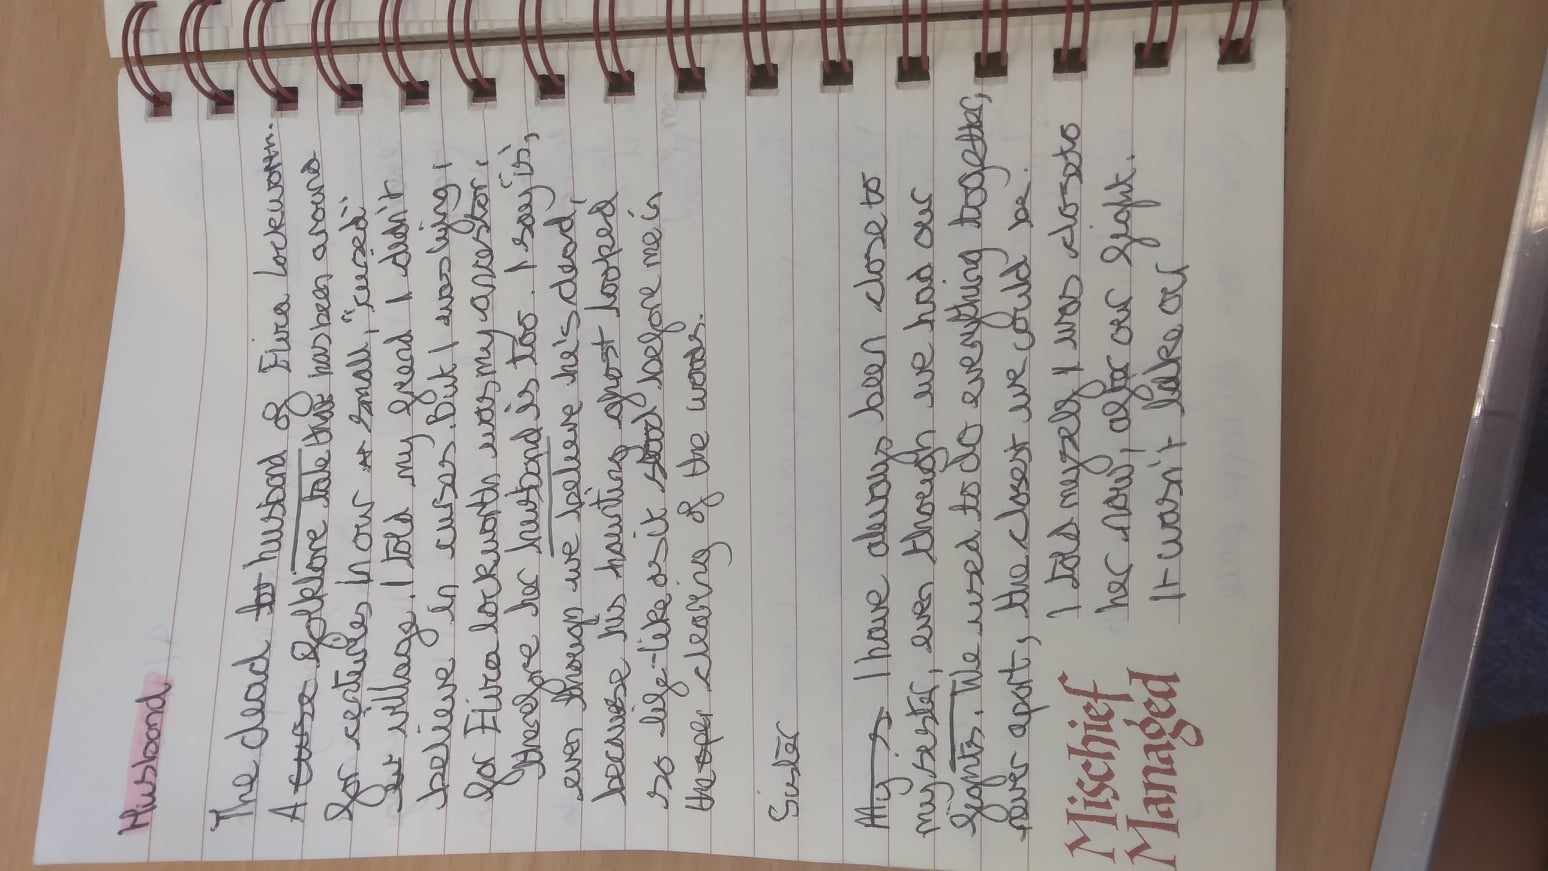 Husband
The dead to husband of Elvira Lockworth.
A curse folklore tale that has been around
for centuries in our small, "cursed"
village. I told my friend I didn't
believe in curses. But I was lying,
for Elvira lockworth was my ancestor,
therefore her husband is too. I say 'is',
even though we believe he's dead,
because his haunting ghost looked
so life-like as it stood before me in
the open clearing of the woods.
Sister
My s I have always been close to
my sister, even though we had our
fights. We used to do everything together,
never apart, the closest we could be.
I told myself I was close to
her now, after our fight.
It wasn't fake our
Mischief
Managed